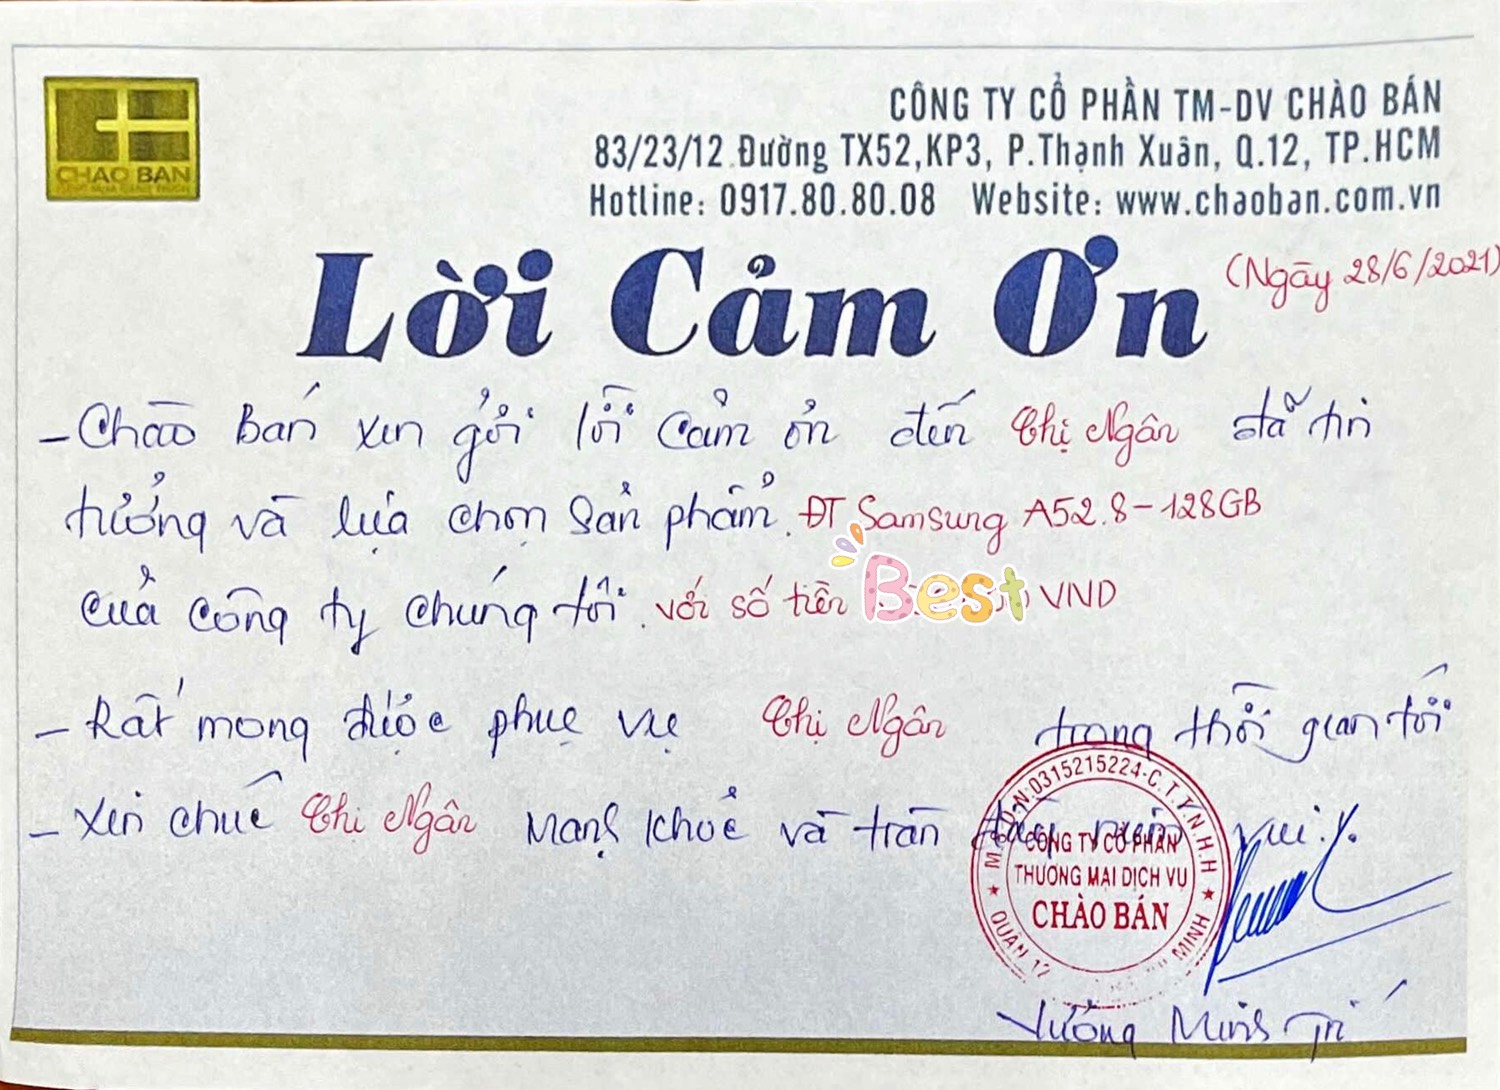 CHAO BAN
CÔNG TY CỔ PHẦN TM-DV CHÀO BÁN
83/23/12 Đường TX52,KP3, P.Thạnh Xuân, Q.12, TP.HCM
Hotline: 0917.80.80.08 Website: www.chaoban.com.vn
Lời Cảm Ơn
(Ngày 28/6/2021)
- Chào Bán xin gửi lời cảm ơn đến Chị Ngân đã tin
tưởng và lựa chọn sản phẩm. ĐT Samsung A52.8-128GB
của công ty chúng tôi. với số tiền Best VND
- Rất mong được phục vụ Chị Ngân trong thời gian tới
- Xin chúc Chị Ngân mạnh khoẻ và tràn đầy niềm vui.
M.S.D.N:0315215224-C.T.T.N.H.H
CÔNG TY CỔ PHẦN
THƯƠNG MẠI DỊCH VỤ
CHÀO BÁN
QUẬN 12 MINH
Vương Minh Trí